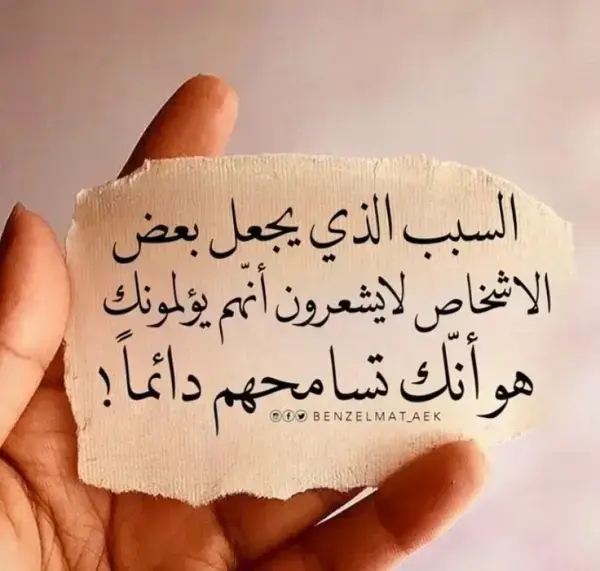 السبب الذي يجعل بعض
الاشخاص لايشعرون أنّهم يؤلمونك
هو أنّك تسامحهم دائماً !
BENZELMAT_AEK